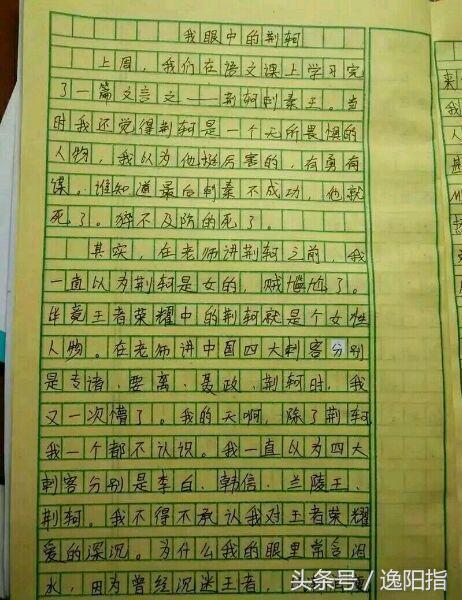 我眼中的荆轲
上周，我们在语文课上学习完
了一篇文言文——荆轲刺秦王。当
时我还觉得荆轲是一个无所畏惧的
人物，我以为他挺厉害的，有勇有
谋。谁知道最后刺秦不成功，他就
死了。猝不及防的死了。
其实，在老师讲荆轲之前，我
一直以为荆轲是女的，贼尴尬了。
毕竟王者荣耀中的荆轲就是个女性
人物。在老师讲中国四大刺客分别
是专诸、要离、聂政、荆轲时，我
又一次懵了。我的天啊，除了荆轲
我一个都不认识。我一直以为四大
刺客分别是李白、韩信、兰陵王、
荆轲。我不得不承认我对王者荣耀
爱的深沉。为什么我的眼里常含泪
水，因为曾经沉迷王者，
来
我
人
我
头条号／逸阳指